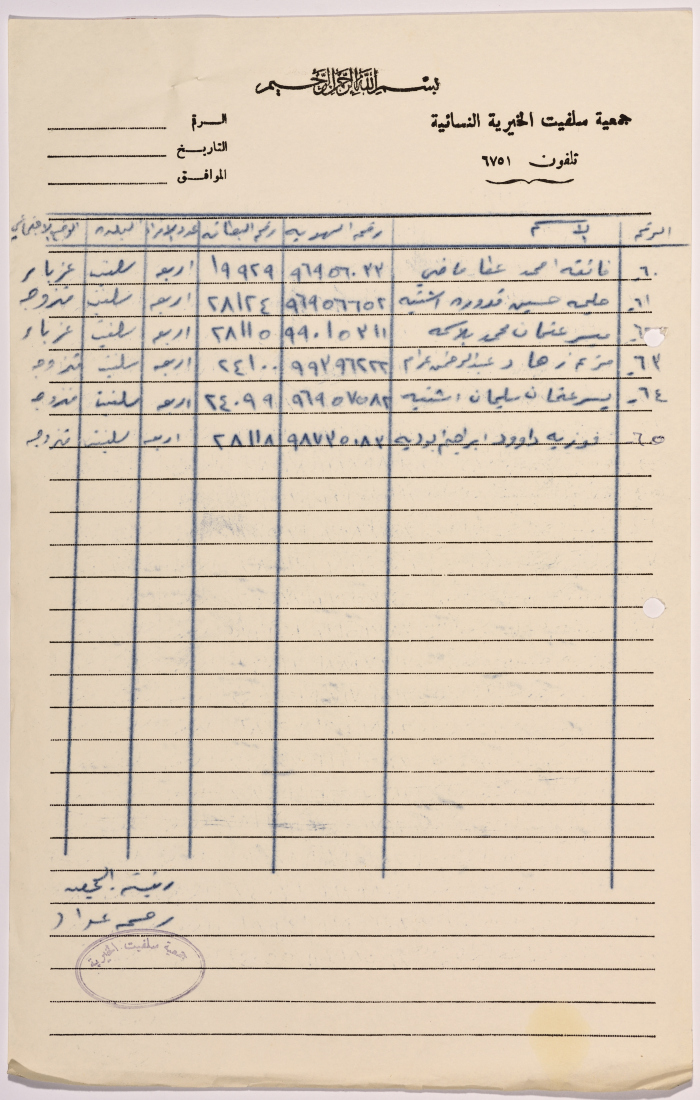 بسم الله الرحمن الرحيم
جمعية سلفيت الخيرية النسائية
تلفون ٦٧٥١
الرقم
التاريخ
الموافق
الرقم الاسم رقم الهوية رقم البطاقة عدد الافراد البلدة الوضع الاجتماعي
٦٠- فائقه احمد ماضي ٩٦٩٥٦٠٣٣ ١٩٩٢٩ اربعه سلفيت عزباء
٦١- حليمه حسين قدوره اشتيه ٩٦٩٥٦٦٥٢ ٢٨١٢٤ اربعه سلفيت متزوجه
يسر عثمان محمد ٩٩٠١٥٣١١ ٢٨١١٥ اربعه سلفيت عزباء
٦٣- عبد الرحمن عزام ٩٩٣٩٦٢٢٢ ٢٤١٠٠ اربعه سلفيت متزوجه
٦٤- يسر عثمان سليمان اشتيه ٩٦٩٥٧٥٨٢ ٢٤٠٩٩ اربعه سلفيت متزوجه
٦٥- فوزيه داوود ابراهيم ٩٨٧٣٥١٨٣ ٢٨١١٨ اربعه سلفيت متزوجه
رئيسة الجمعية
جمعية سلفيت الخيرية